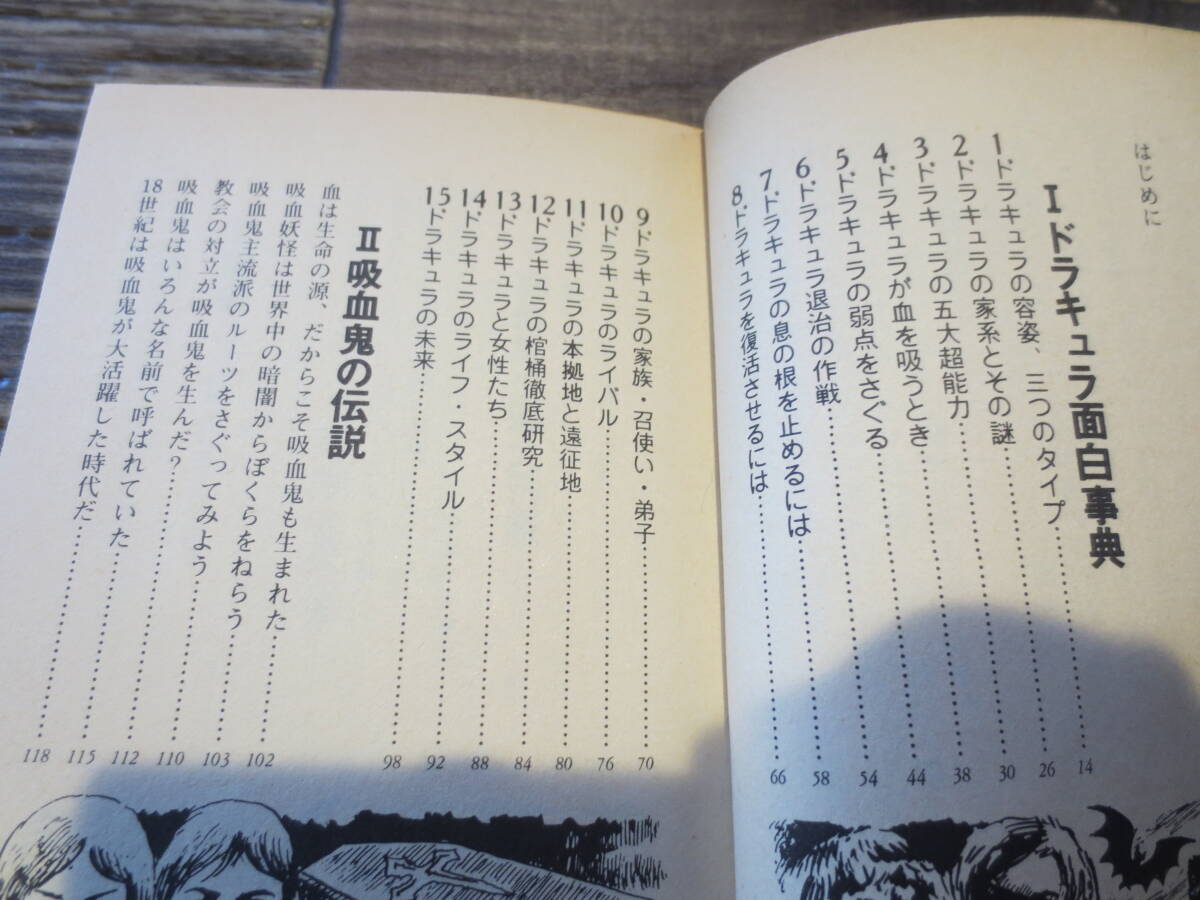 はじめに
I ドラキュラ面白事典
1.ドラキュラの容姿、三つのタイプ……14
2.ドラキュラの家系とその謎……26
3.ドラキュラの五大超能力……30
4.ドラキュラが血を吸うとき……38
5.ドラキュラの弱点をさぐる……44
6.ドラキュラ退治の作戦……54
7.ドラキュラの息の根を止めるには……58
8.ドラキュラを復活させるには……66
9.ドラキュラの家族・召使い・弟子……70
10.ドラキュラのライバル……76
11.ドラキュラの本拠地と遠征地……80
12.ドラキュラの棺桶徹底研究……84
13.ドラキュラと女性たち……88
14.ドラキュラのライフ・スタイル……92
15.ドラキュラの未来……98
II 吸血鬼の伝説
血は生命の源、だからこそ吸血鬼も生まれた……102
吸血妖怪は世界中の暗闇からぼくらをねらう……103
吸血鬼主流派のルーツをさぐってみよう……110
教会の対立が吸血鬼を生んだ?……112
吸血鬼はいろんな名前で呼ばれていた……115
18世紀は吸血鬼が大活躍した時代だ……118